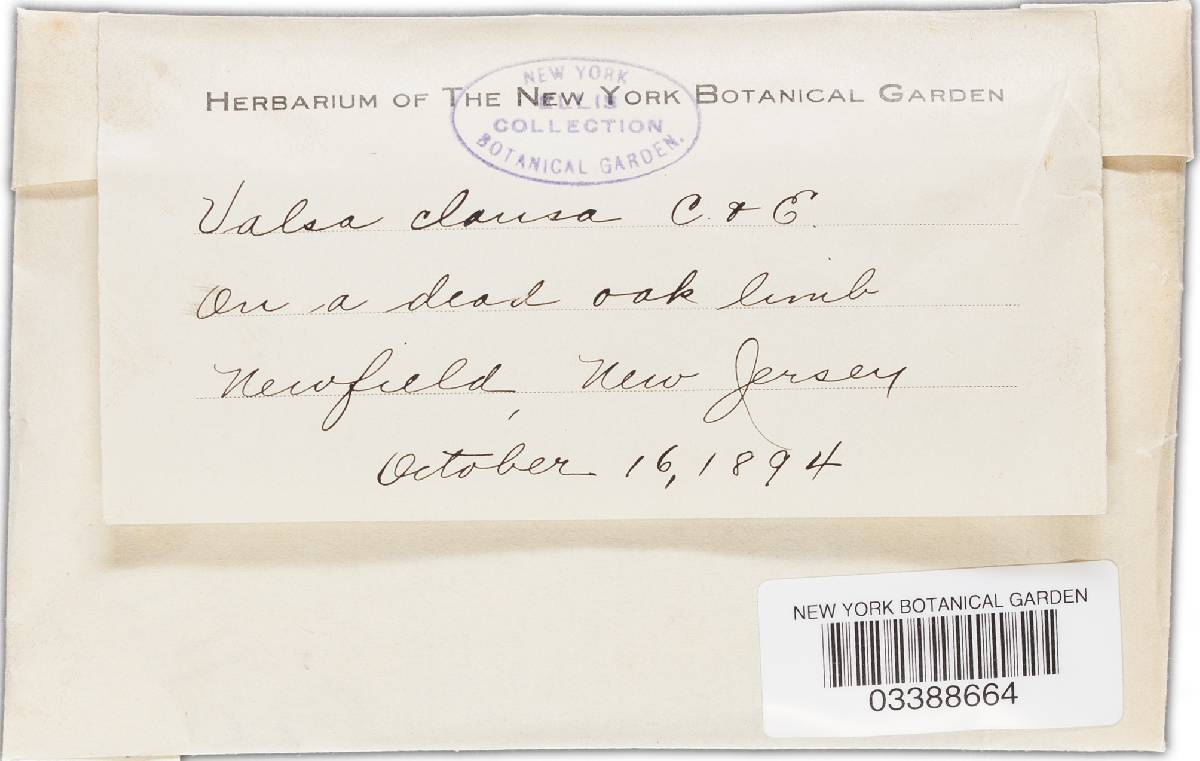 HERBARIUM OF THE NEW YORK BOTANICAL GARDEN
NEW YORK
ELLIS
COLLECTION
BOTANICAL GARDEN.
Valsa clausa C. & E.
On a dead oak limb
Newfield, New Jersey
October 16, 1894
NEW YORK BOTANICAL GARDEN
03388664